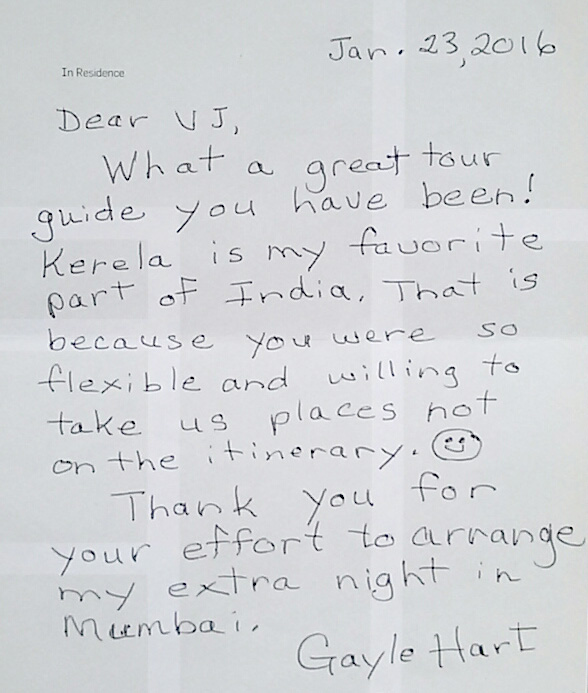 Jan. 23, 2016
In Residence
Dear VJ,
What a great tour
guide you have been!
Kerela is my favorite
part of India. That is
because you were so
flexible and willing to
take us places not
on the itinerary.
Thank you for
your effort to arrange
my extra night in
Mumbai.
Gayle Hart